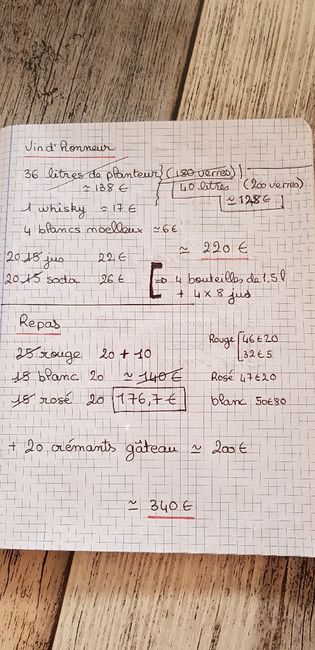 Vin d'Honneur
36 litres de planteur (180 verres)
≈ 138 € 40 litres (200 verres)
≈ 128 €
1 whisky ≈ 17 €
4 blancs moelleux ≈ 6 €
≈ 220 €
20 15 jus 22 €
20 15 soda 26 € [⇒ 4 bouteilles de 1,5 l
+ 4 x 8 jus
Repas
25 rouge 20 + 10 Rouge [46€20
32€5
15 blanc 20 ≈ 140 € Rosé 47€20
15 rosé 20 176,7 € blanc 50€80
+ 20 crémants gâteau ≈ 200 €
≈ 340 €